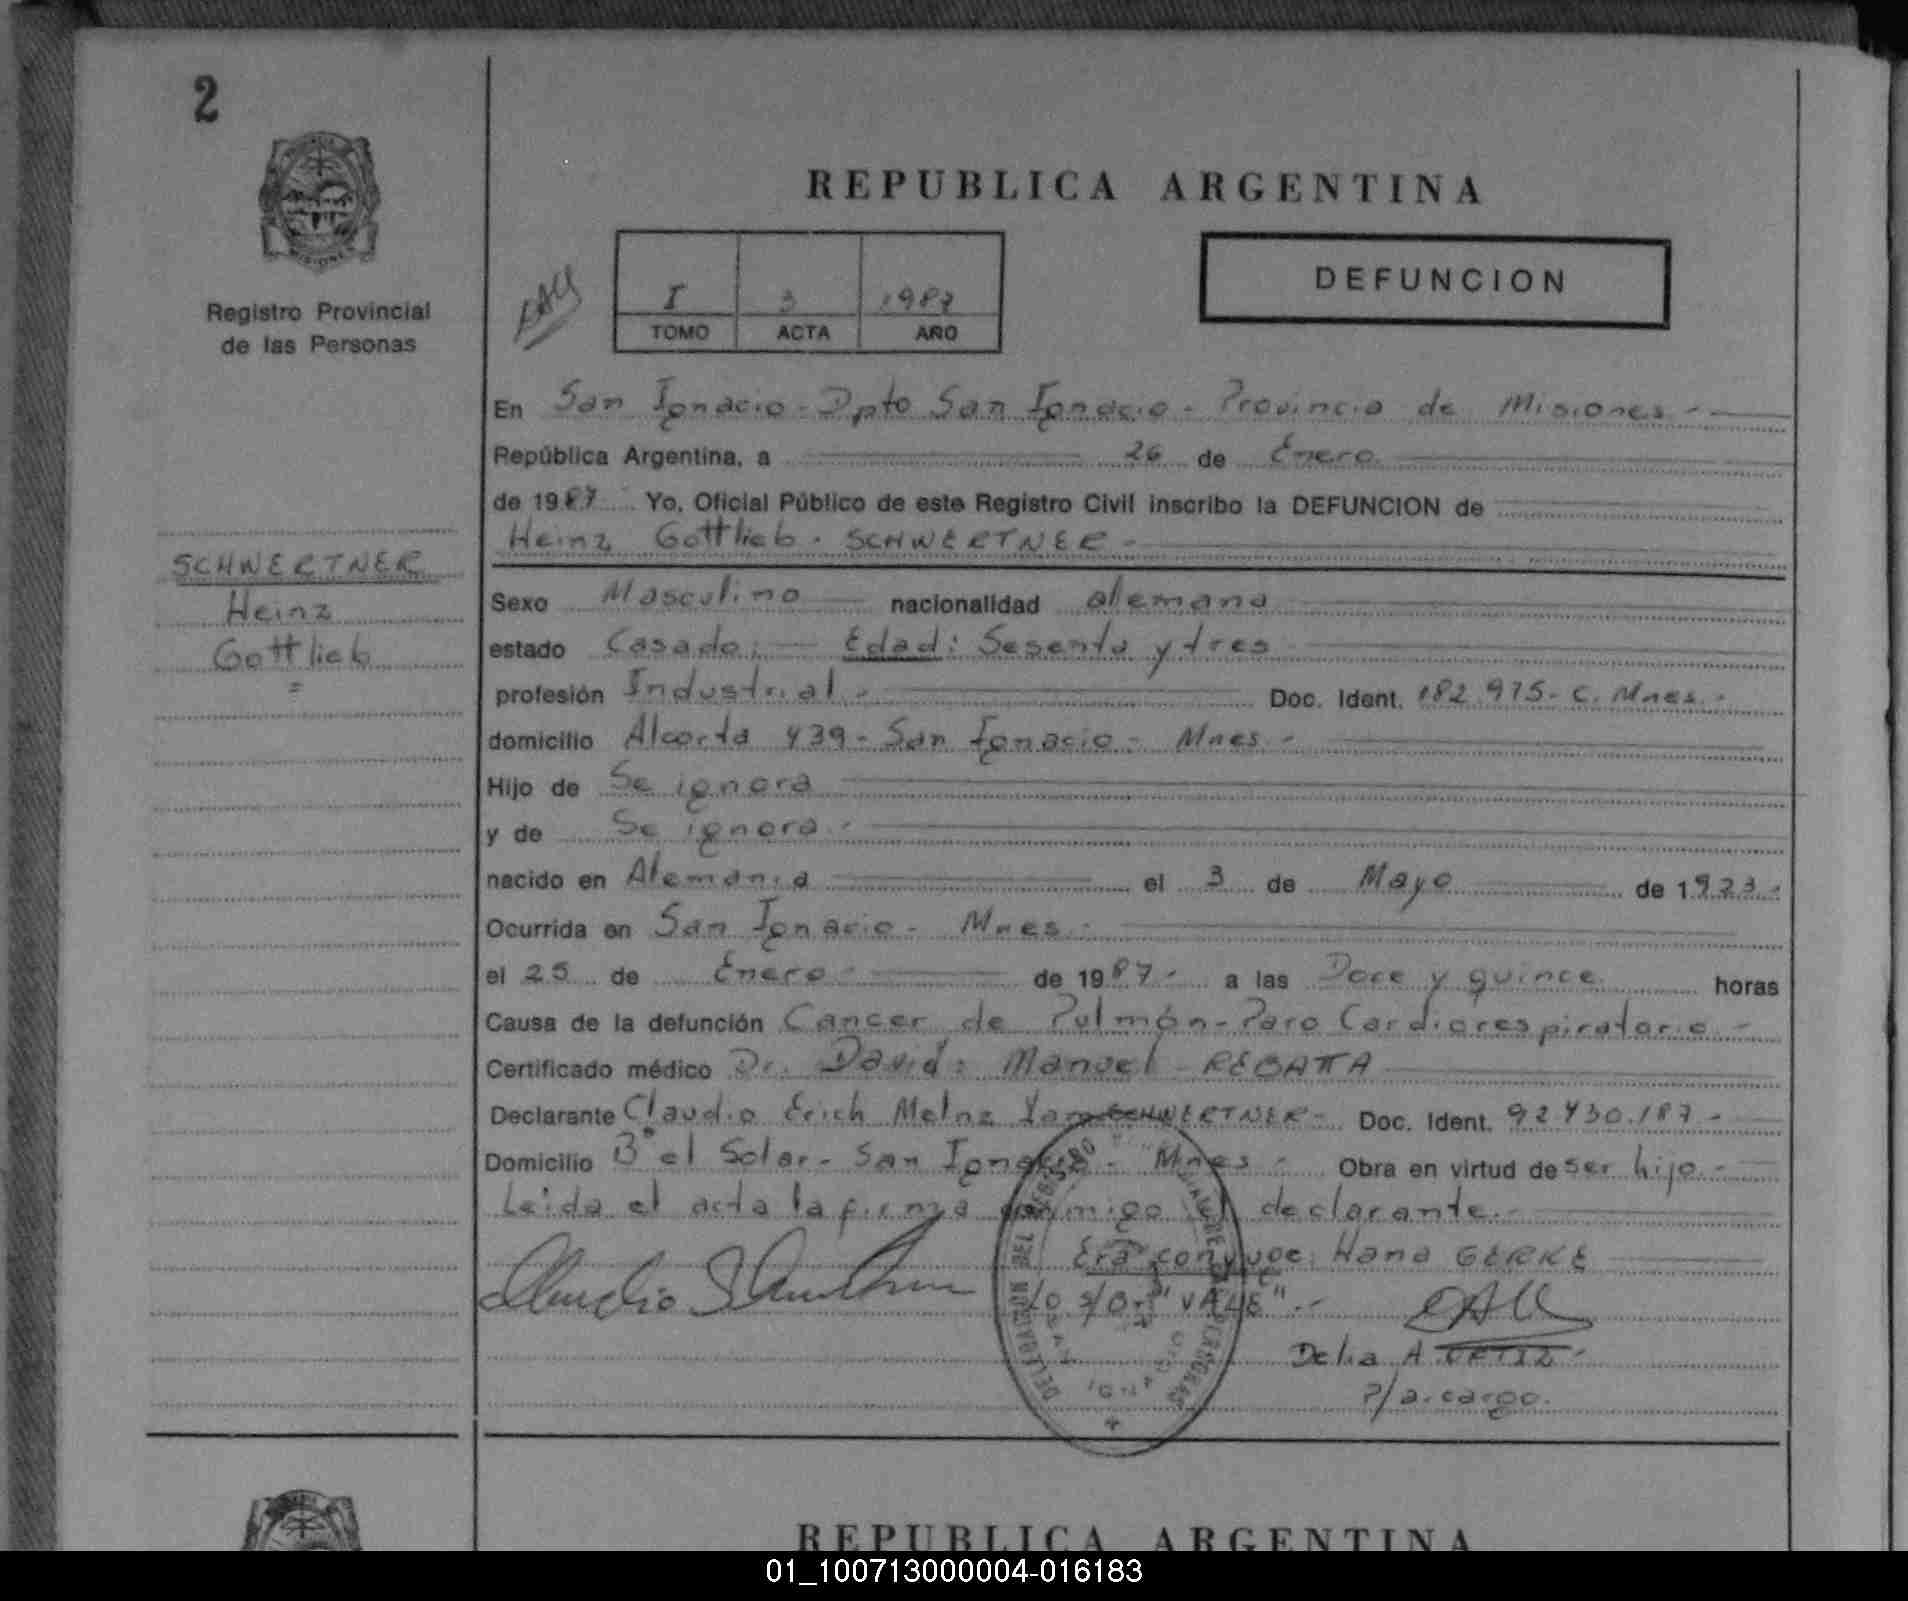 2
MISIONES
Registro Provincial
de las Personas
REPUBLICA ARGENTINA
I 3 1987
TOMO ACTA AÑO
DEFUNCION
En San Ignacio - Dpto San Ignacio - Provincia de Misiones -
República Argentina, a 26 de Enero
de 1987 Yo, Oficial Público de este Registro Civil inscribo la DEFUNCION de
Heinz Gottlieb - SCHWERTNER -
SCHWERTNER
Heinz
Gottlieb
=
Sexo Masculino nacionalidad alemana
estado Casado: Edad: Sesenta y tres
profesión Industrial - Doc. Ident. 182.975 - C. Mnes. -
domicilio Alcorta 439 - San Ignacio - Mnes. -
Hijo de Se ignora
y de Se ignora. -
nacido en Alemania el 3 de Mayo de 1923. -
Ocurrida en San Ignacio - Mnes. -
el 25 de Enero - de 1987 - a las Doce y quince horas
Causa de la defunción Cancer de Pulmón - Paro Cardiorespiratorio -
Certificado médico Dr. David: Manuel - REBATTA
Declarante Claudio Erich SCHWERTNER - Doc. Ident. 92430.187 -
Domicilio B° el Solar - San Ignacio - Mnes - Obra en virtud de ser hijo. -
Leida el acta la firma conmigo el declarante. -
Era conyuge: Hana GERKE
Lo s/Br "VALE" . -
Delia A. ORTIZ -
P/a. cargo.
SAN IGNACIO
REPUBLICA ARGENTINA
01_100713000004-016183